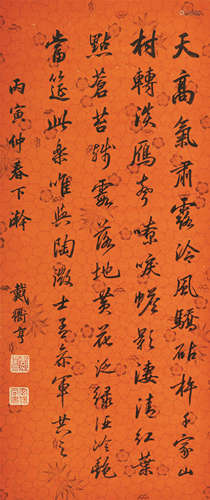 天高氣肅露冷風驕砧杵千家山
村轉淡雁聲嘹唳蟾影淒清紅葉
點蒼苔殘霞落地黃花泛綠酒冷艷
當筵此樂唯與陶徵士孟參軍共之
丙寅仲春下澣
戴衢亨